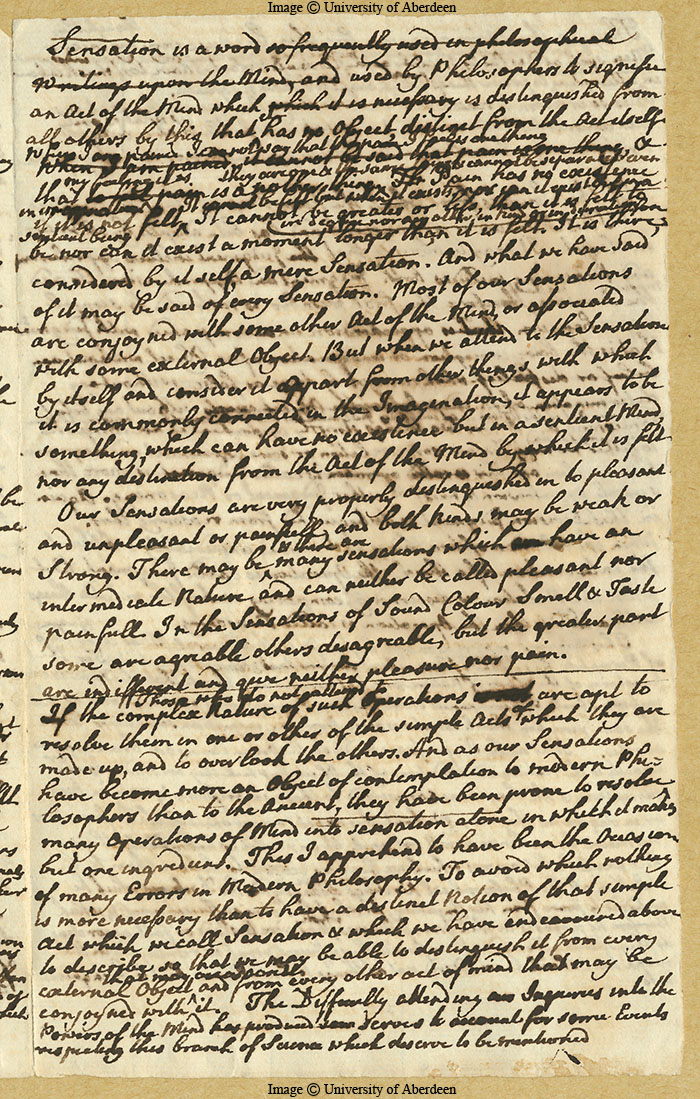 Image © University of Aberdeen
Sensation is a word so frequently used in philosophical
Writings upon the Mind, and used by Philosophers to signifie
an Act of the Mind which it is necessary is distinguished from
all others by this, that has no Object distinct from the Act itself
When I am pained I cannot say that the pain I feel is one thing
When I am pained, it cannot be said that pain is one thing &
my feeling it is They are one & the same thing & cannot be separated
that pain is a Pain has no existence
imagination
if it is not felt, It cannot be greater or less, than it is felt to
sentient being
be nor can it exist a moment longer than it is felt. It is there
considered by it self a mere Sensation. And what we have said
of it may be said of every Sensation. Most of our Sensations
are conjoyned with some other Act of the Mind, or associated
with some external Object. But when we attend to the Sensation
by itself and consider it appart from other things with which
it is commonly connected in the Imagination, it appears to be
something, which can have no existence but in a sentient Mind,
nor any distinction from the Act of the Mind by which it is felt
Our Sensations are very properly distinguished in to pleasant
and unpleasant or painfull, and both kinds may be weak or
& there are
Strong. There may be many sensations which have an
intermediate Nature and can neither be called pleasant nor
painfull. In the Sensations of Sound Colour Smell & Taste
some are agreable others desagreable, but the greater part
are indifferent and give neither pleasure nor pain.
Those who do not attend
If the complex Nature of such Operations are apt to
resolve them in one or other of the simple Acts of which they are
made up, and to overlook the others. And as our Sensations
have become more an Object of contemplation to modern Phi=
losophers than to the Ancient, they have been prone to resolve
many Operations of Mind into sensation alone in which it makes
but one ingredient. This I apprehend to have been the Occasion
of many Errors in Modern Philosophy. To avoid which nothing
is more necessary than to have a distinct Notion of that simple
Act which we call Sensation & which we have endeavoured above
to describe so that we may be able to distinguish it from every
external Object and from every other act of mind that may be
conjoyned with it. The Difficulty attending our Inquiries into the
Powers of the Mind has produced serves to account for some Events
respecting this branch of Science which deserve to be mentioned
Image © University of Aberdeen